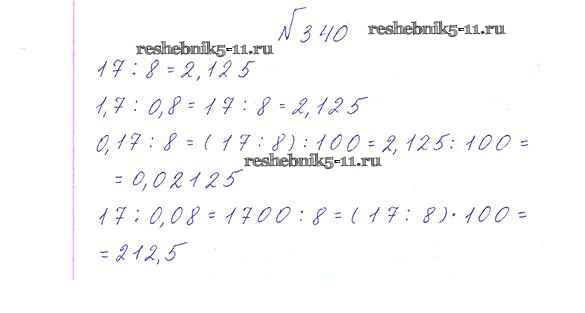 №340
reshebnik5-11.ru
reshebnik5-11.ru
17 : 8 = 2,125
1,7 : 0,8 = 17 : 8 = 2,125
0,17 : 8 = (17 : 8) : 100 = 2,125 : 100 =
reshebnik5-11.ru
= 0,02125
17 : 0,08 = 1700 : 8 = (17 : 8) · 100 =
= 212,5